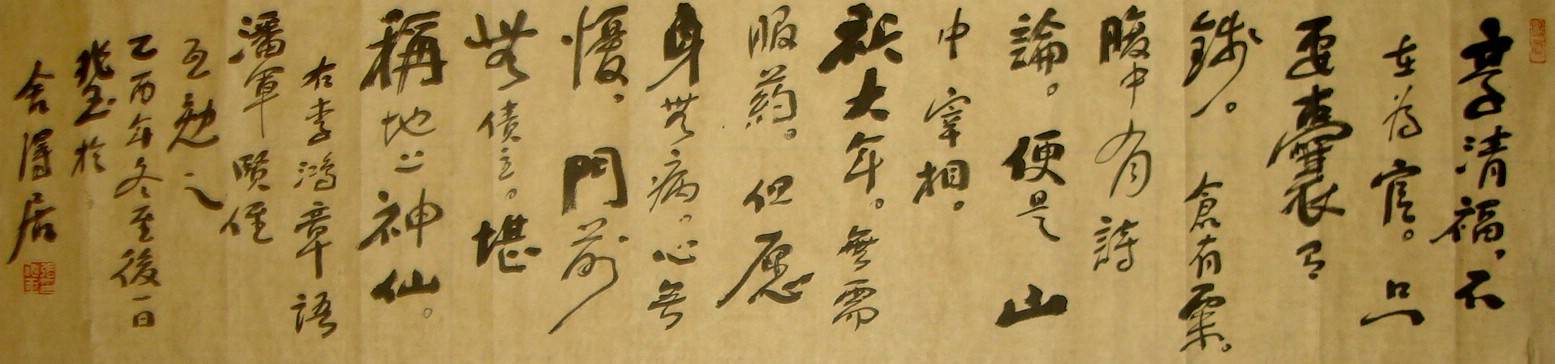 享清福，不
在為官。只
要囊有
錢。倉有粟。
腹中有詩
論。便是山
中宰相。
祈大年。無需
服药。但愿
身無病。心無
憂，門前
無债主。堪
稱地上神仙。
右李鴻章語
潘軍賢侄
互勉之
乙丙年冬至後一日
於
舍得居